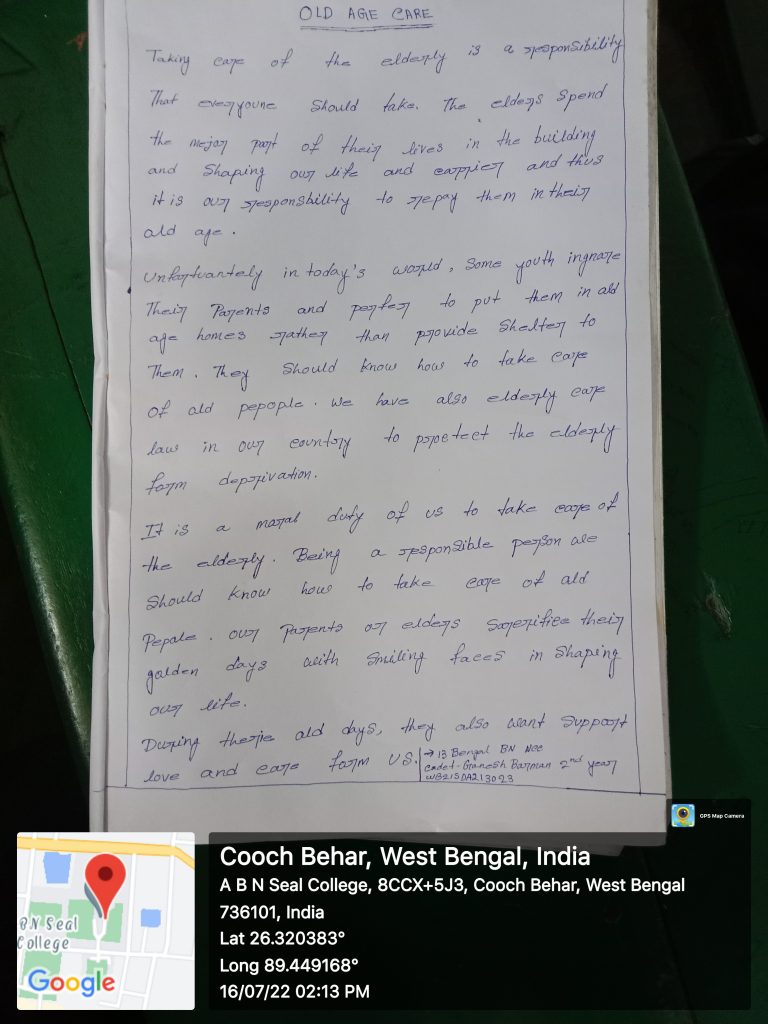 OLD AGE CARE
Taking care of the elderly is a responsibility
That everyoune should take. The elders spend
the mejor part of their lives in the building
and shaping our life and carrier and thus
it is our responsbility to repay them in their
old age.
Unfortuantely in today's world, some youth ingnore
Their Parents and perfer to put them in old
age homes rather than provide shelter to
Them. They should know how to take care
of old pepople. We have also elderly care
law in our country to protect the elderly
form deprivation.
It is a moral duty of us to take care of
the elderly. Being a responsible person we
should know how to take care of old
Pepole. our Parents or elders sacrifice their
golden days with smiling faces in shaping
our life.
During therie old days, they also want support
love and care form us.
→ 13 Bengal BN NCC
cadet- Ganesh Barman 2nd year
WB21SDA213023
GPS Map Camera
Cooch Behar, West Bengal, India
A B N Seal College, 8CCX+5J3, Cooch Behar, West Bengal
736101, India
Lat 26.320383°
Long 89.449168°
16/07/22 02:13 PM
BN Seal
College
Google